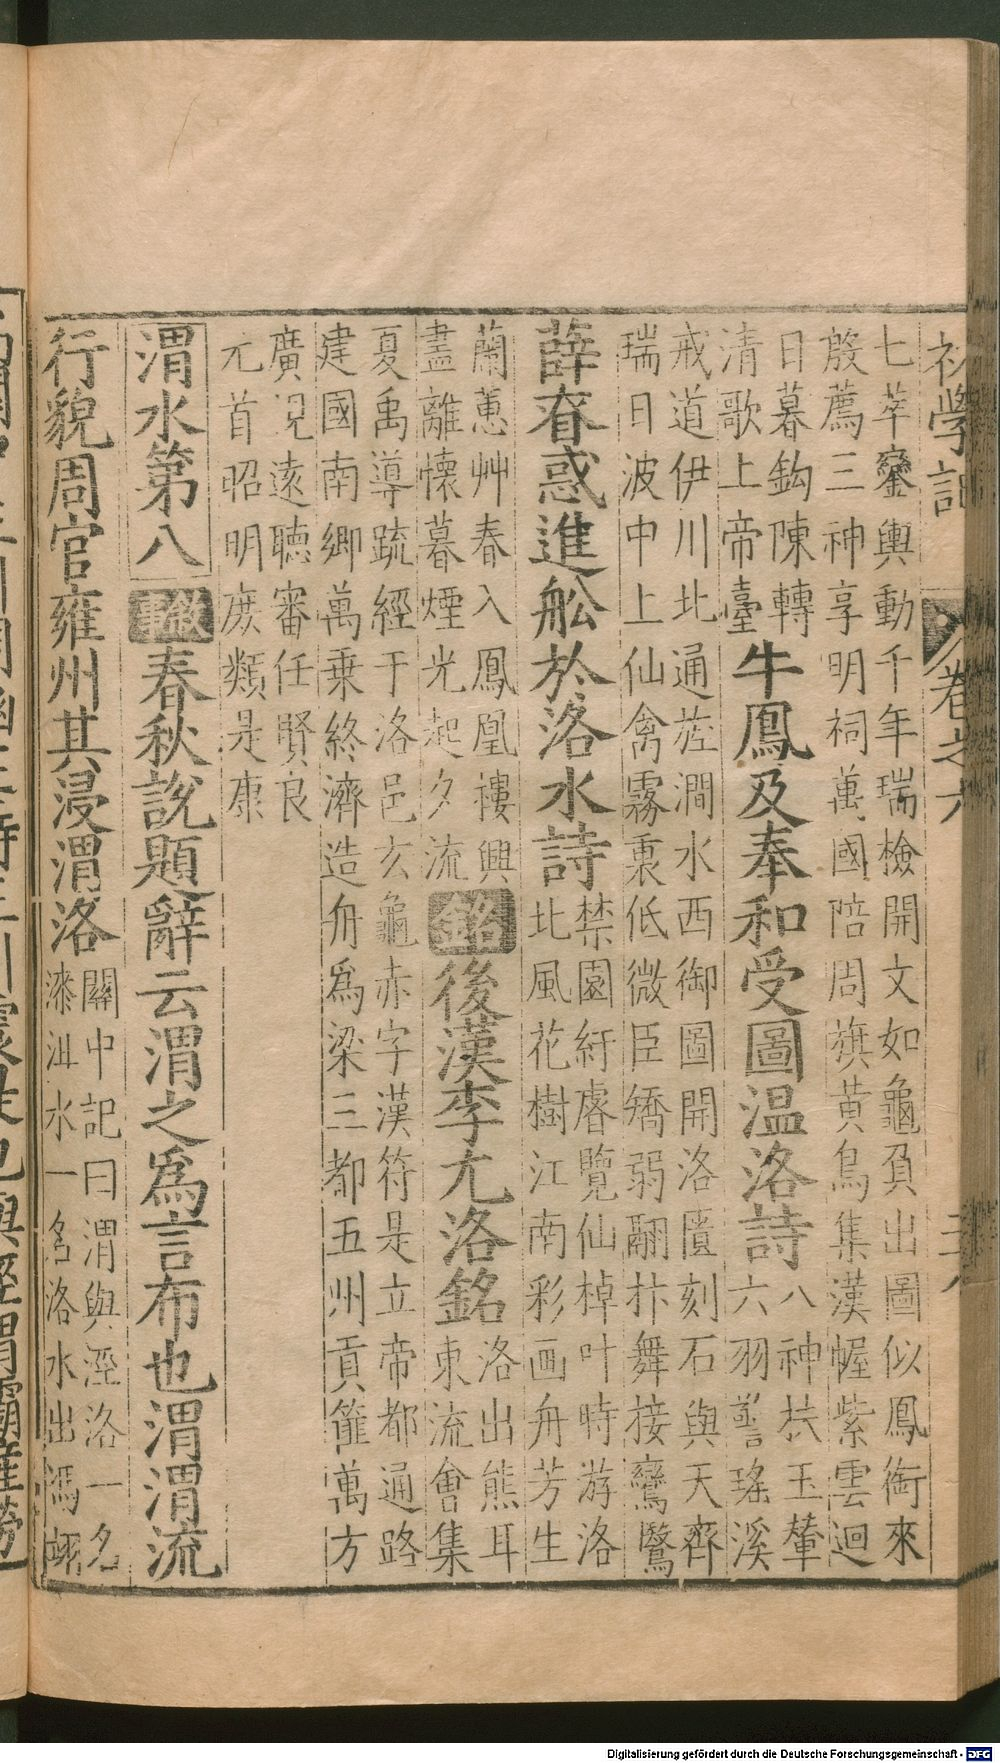 初學記 卷之六
七萃鑾輿動千年瑞檢開文如龜負出圖似鳳銜來
殷薦三神享明祠萬國陪周旗黃鳥集漢幄紫雲迴
日暮鈎陳轉
清歌上帝臺
牛鳳及奉和受圖温洛詩
八神扶玉輦
六羽警瑤溪
戒道伊川北通澗水西御圖開洛匱刻石與天齊
瑞日波中上仙禽霧裏低微臣矯弱翮抃舞接鸞鷖
薛昚惑進舩於洛水詩
禁園紆睿覽仙棹叶時游洛
北風花樹江南彩画舟芳生
蘭蕙艸春入鳳凰樓興
盡離懷暮煙光起夕流
銘後漢李尤洛銘
洛出熊耳
東流會集
夏禹導疏經于洛邑玄龜赤字漢符是立帝都通路
建國南鄉萬乗終濟造舟爲梁三都五州貢篚萬方
廣視遠聽審任賢良
元首昭明庶類是康
渭水第八 敘事 春秋說題辭云渭之爲言布也渭渭流
行貌周官雍州其浸渭洛
關中記曰渭與涇洛一名
漆沮水一名洛水出馮翊
Digitalisierung gefördert durch die Deutsche Forschungsgemeinschaft - DFG